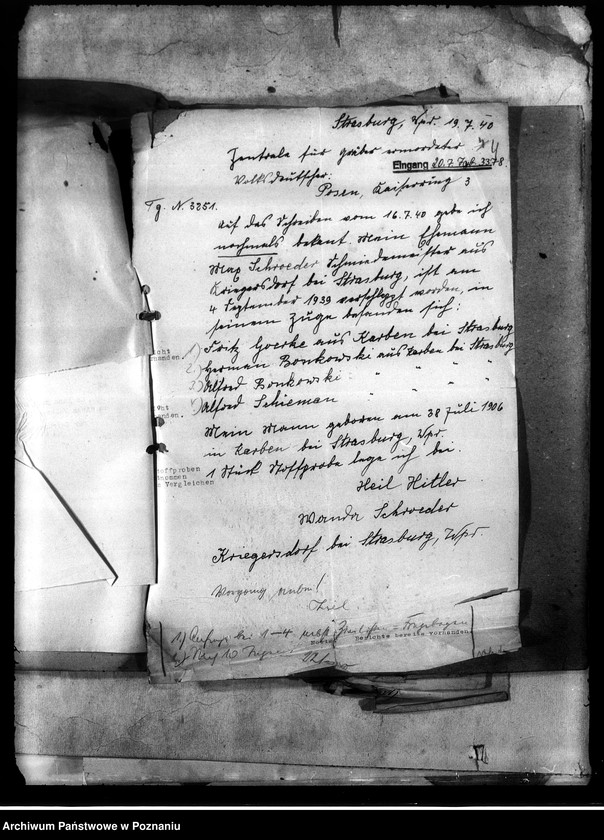 Strasburg, Wpr. 19.7.40
Zentrale für Gräber ermordeter
Volksdeutscher.
Eingang 20.7. 3378.
Posen, Kaiserring 3
Tg. N. 3251.
Auf das Schreiben vom 16.7.40 gebe ich
nochmals bekant. Mein Ehemann
Max Schroeder Schmiedemeister aus
Kriegersdorf bei Strasburg, ist am
4 September 1939 verschleppt worden, in
seinem Zuge befanden sich:
1) Fritz Goerke aus Karben bei Strasburg
2) Herman Bonkowski aus Karben bei Strasburg
3) Alfred Bonkowski " " " "
4) Alfred Schieman " " " "
Mein Mann geboren am 38 Juli 1906
in Karben bei Strasburg, Wpr.
1 Stück Stoffprobe lege ich bei.
Heil Hitler
Wanda Schroeder
Kriegersdorf bei Strasburg, Wpr.
Vorgang
1) 1-4
Berichte bereits vorhanden
cht
handen.
cht
nden.
toffproben
nommen
Vergleichen
Archiwum Państwowe w Poznaniu